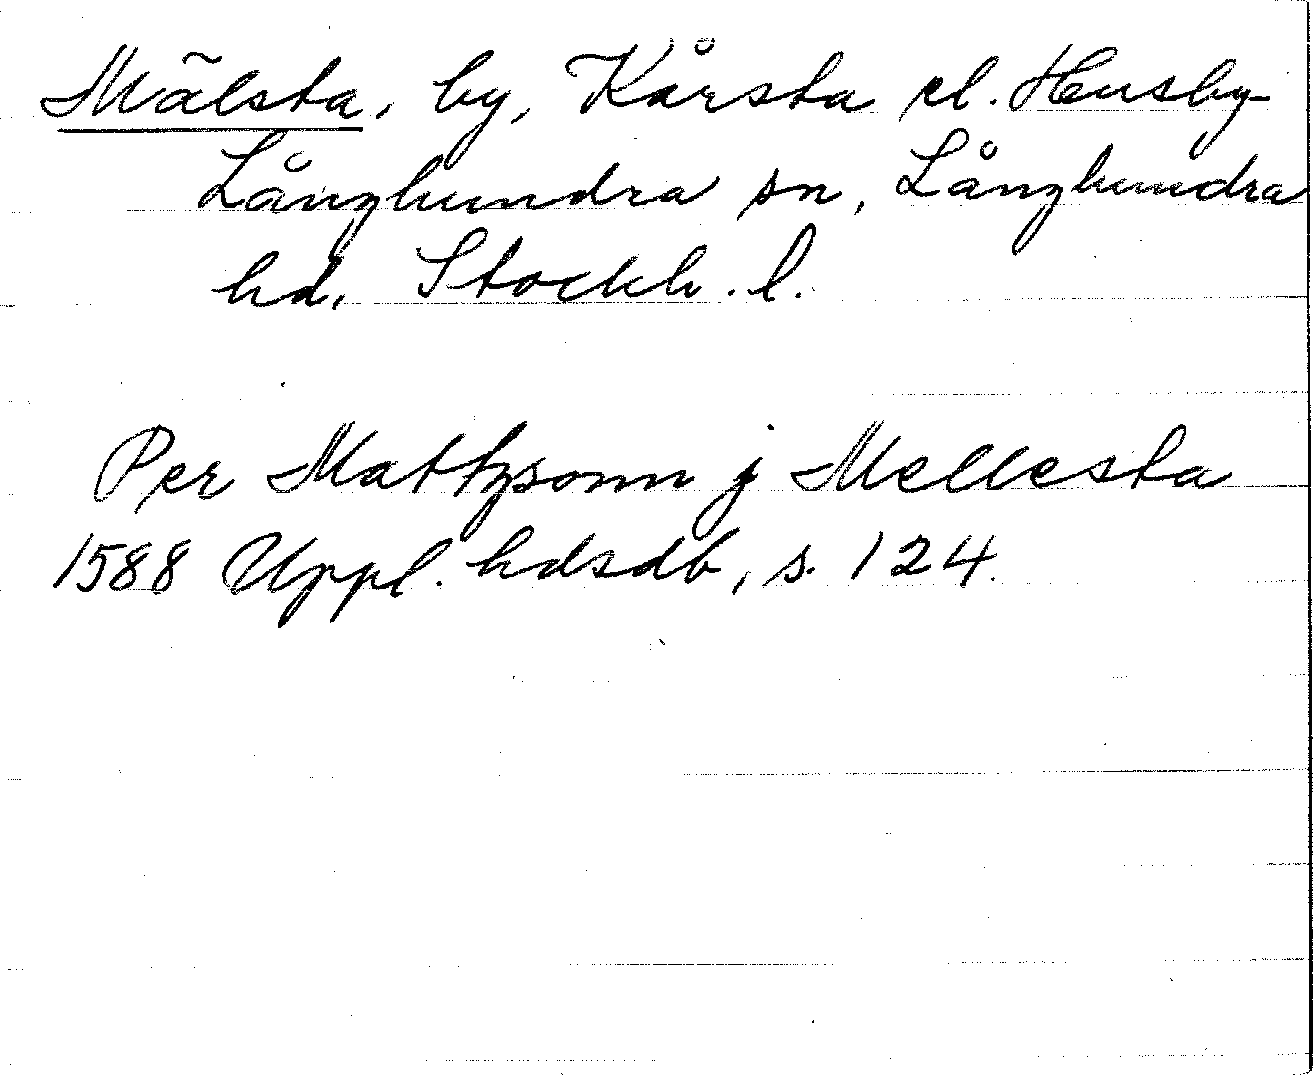 Mälsta, by, Kårsta el. Husby-
Långhundra sn, Långhundra
hd, Stockh. l.
Per Mattzsonn j Mellesta
1588 Uppl. hdsdb, s. 124.